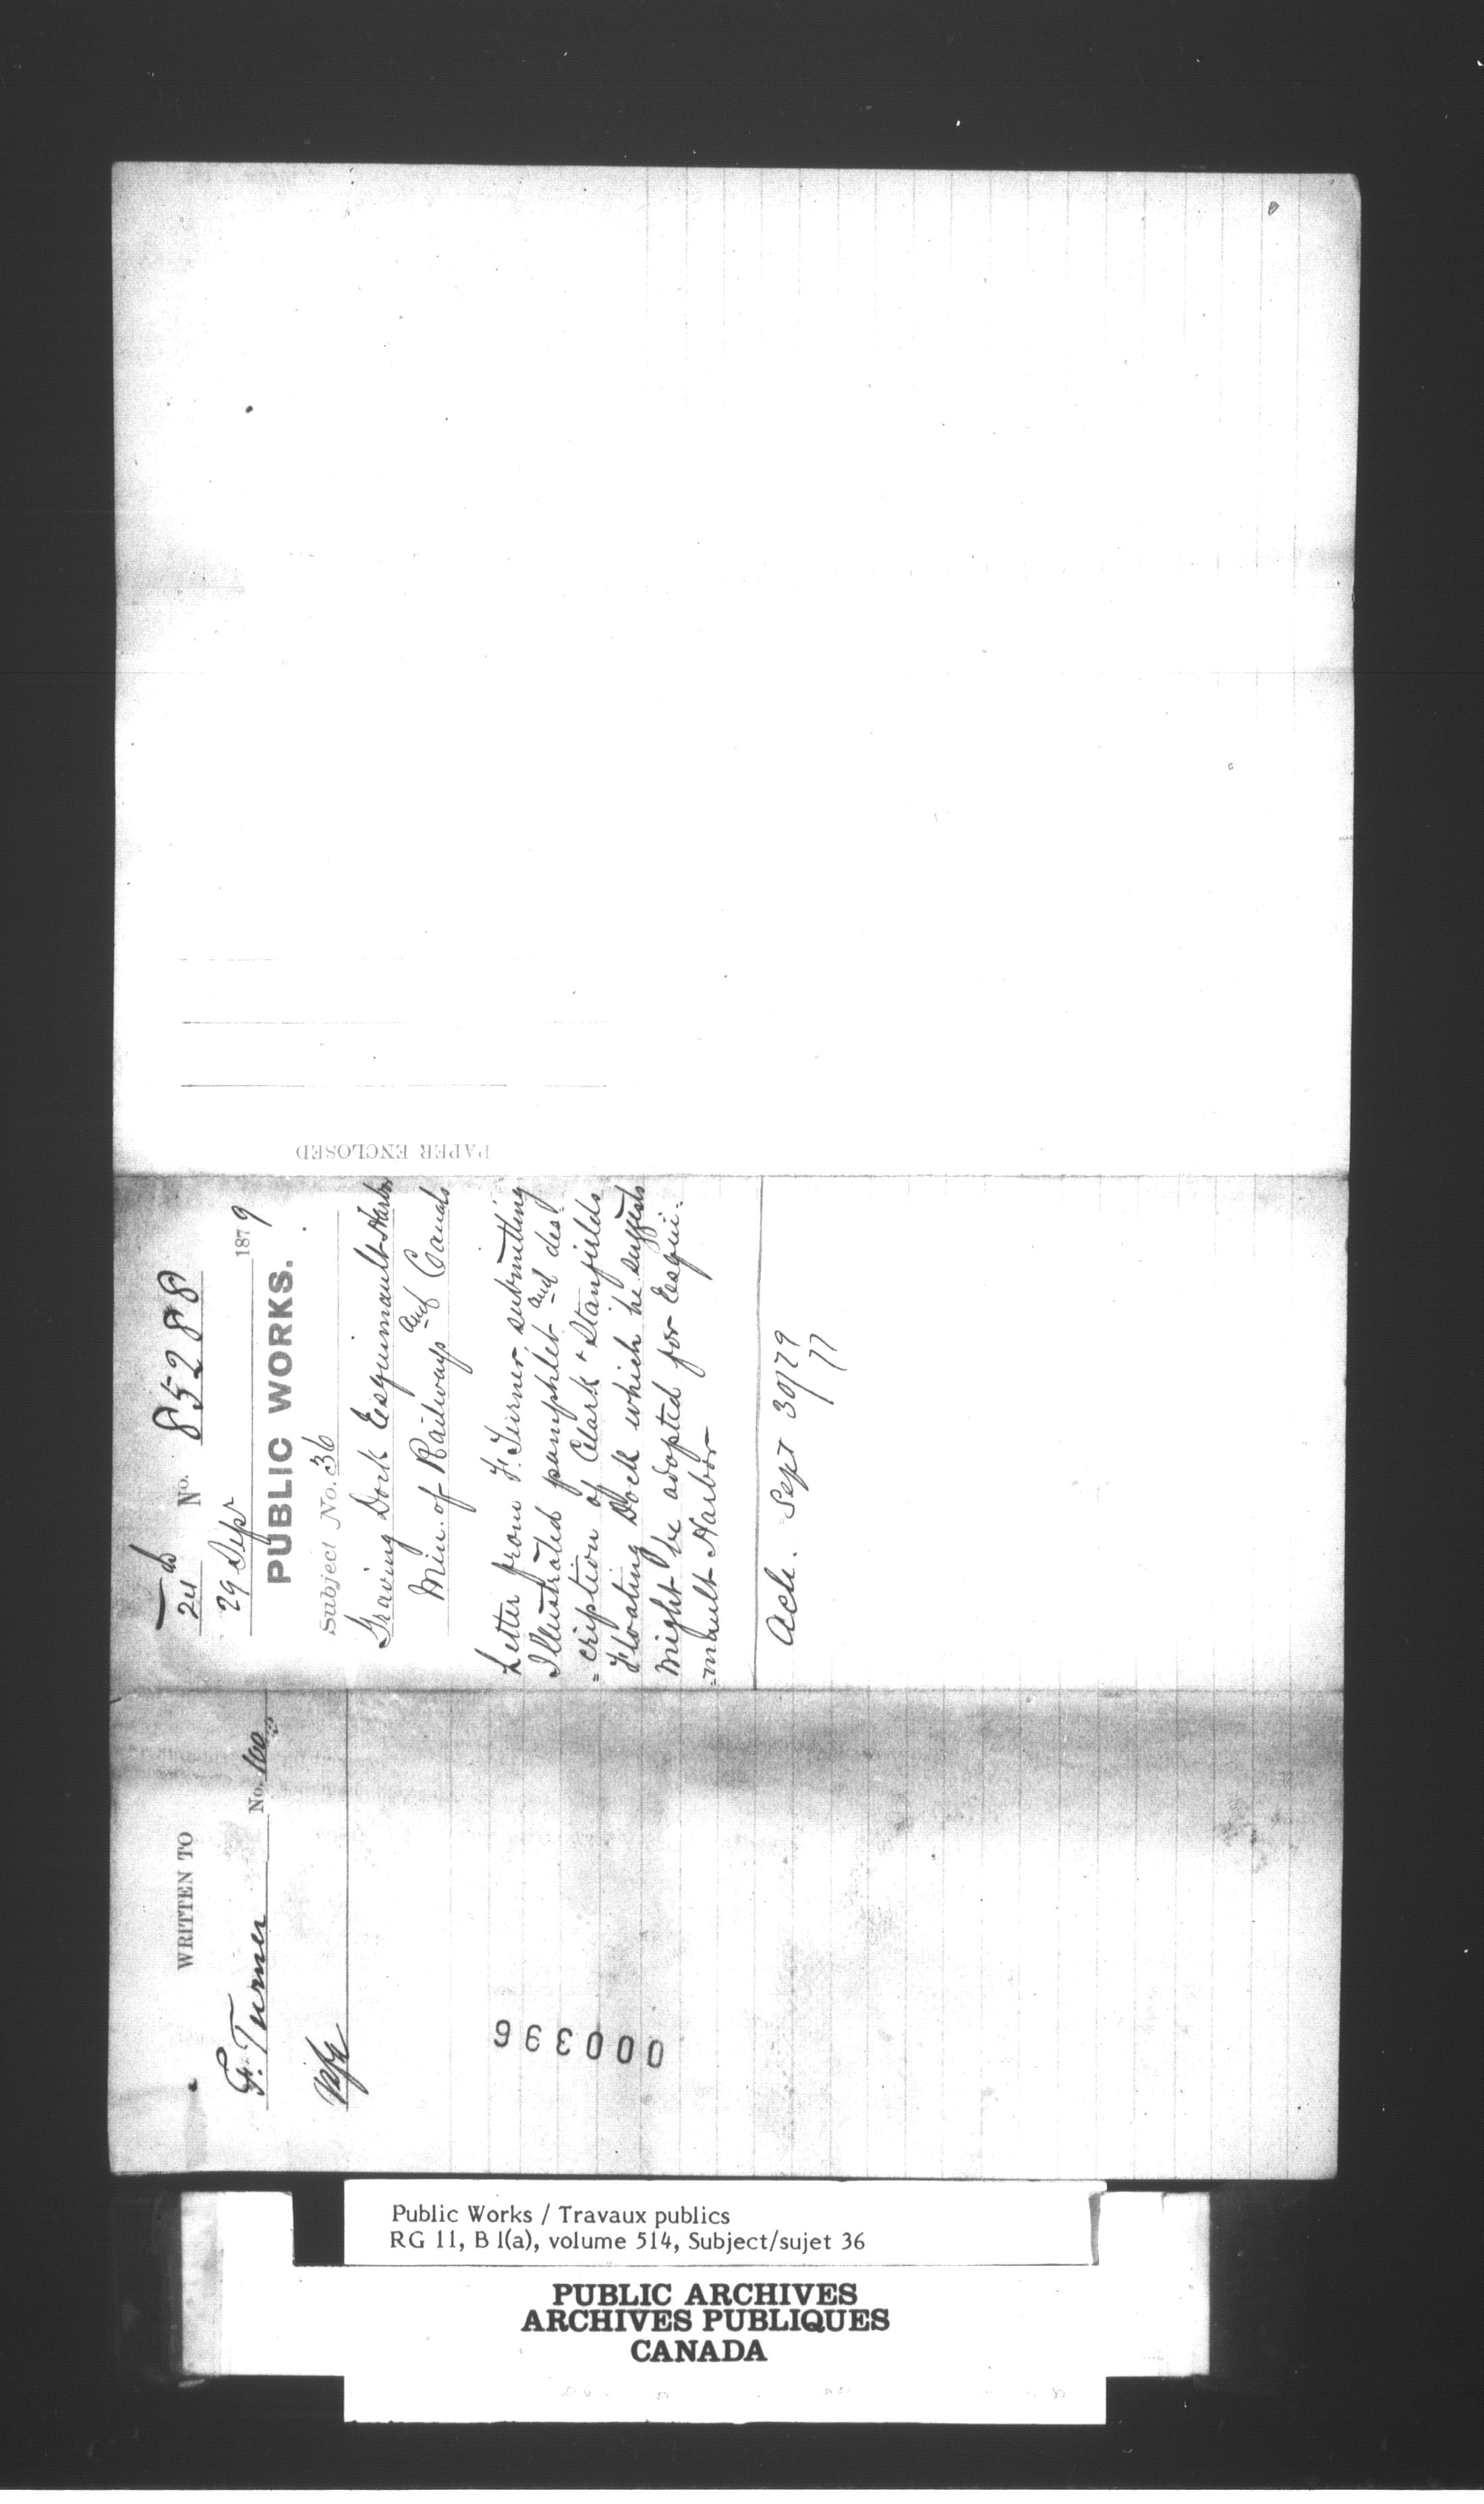 PAPER ENCLOSED
24 No. 85288
29 Sepr 1879
PUBLIC WORKS.
Subject No. 36
Graving Dock Esquimault Harbor
Min. of Railways and Canals
Letter from F. Turner submitting
Illustrated pamphlet and des=
=cription of Clark & Stanfields
Floating Dock which he suggests
might be adopted for Esqui=
=mault Harbor
Ack. Sept 30/79
WRITTEN TO
F. Turner No. 100
000396
Public Works / Travaux publics
RG 11, B 1(a), volume 514, Subject/sujet 36
PUBLIC ARCHIVES
ARCHIVES PUBLIQUES
CANADA